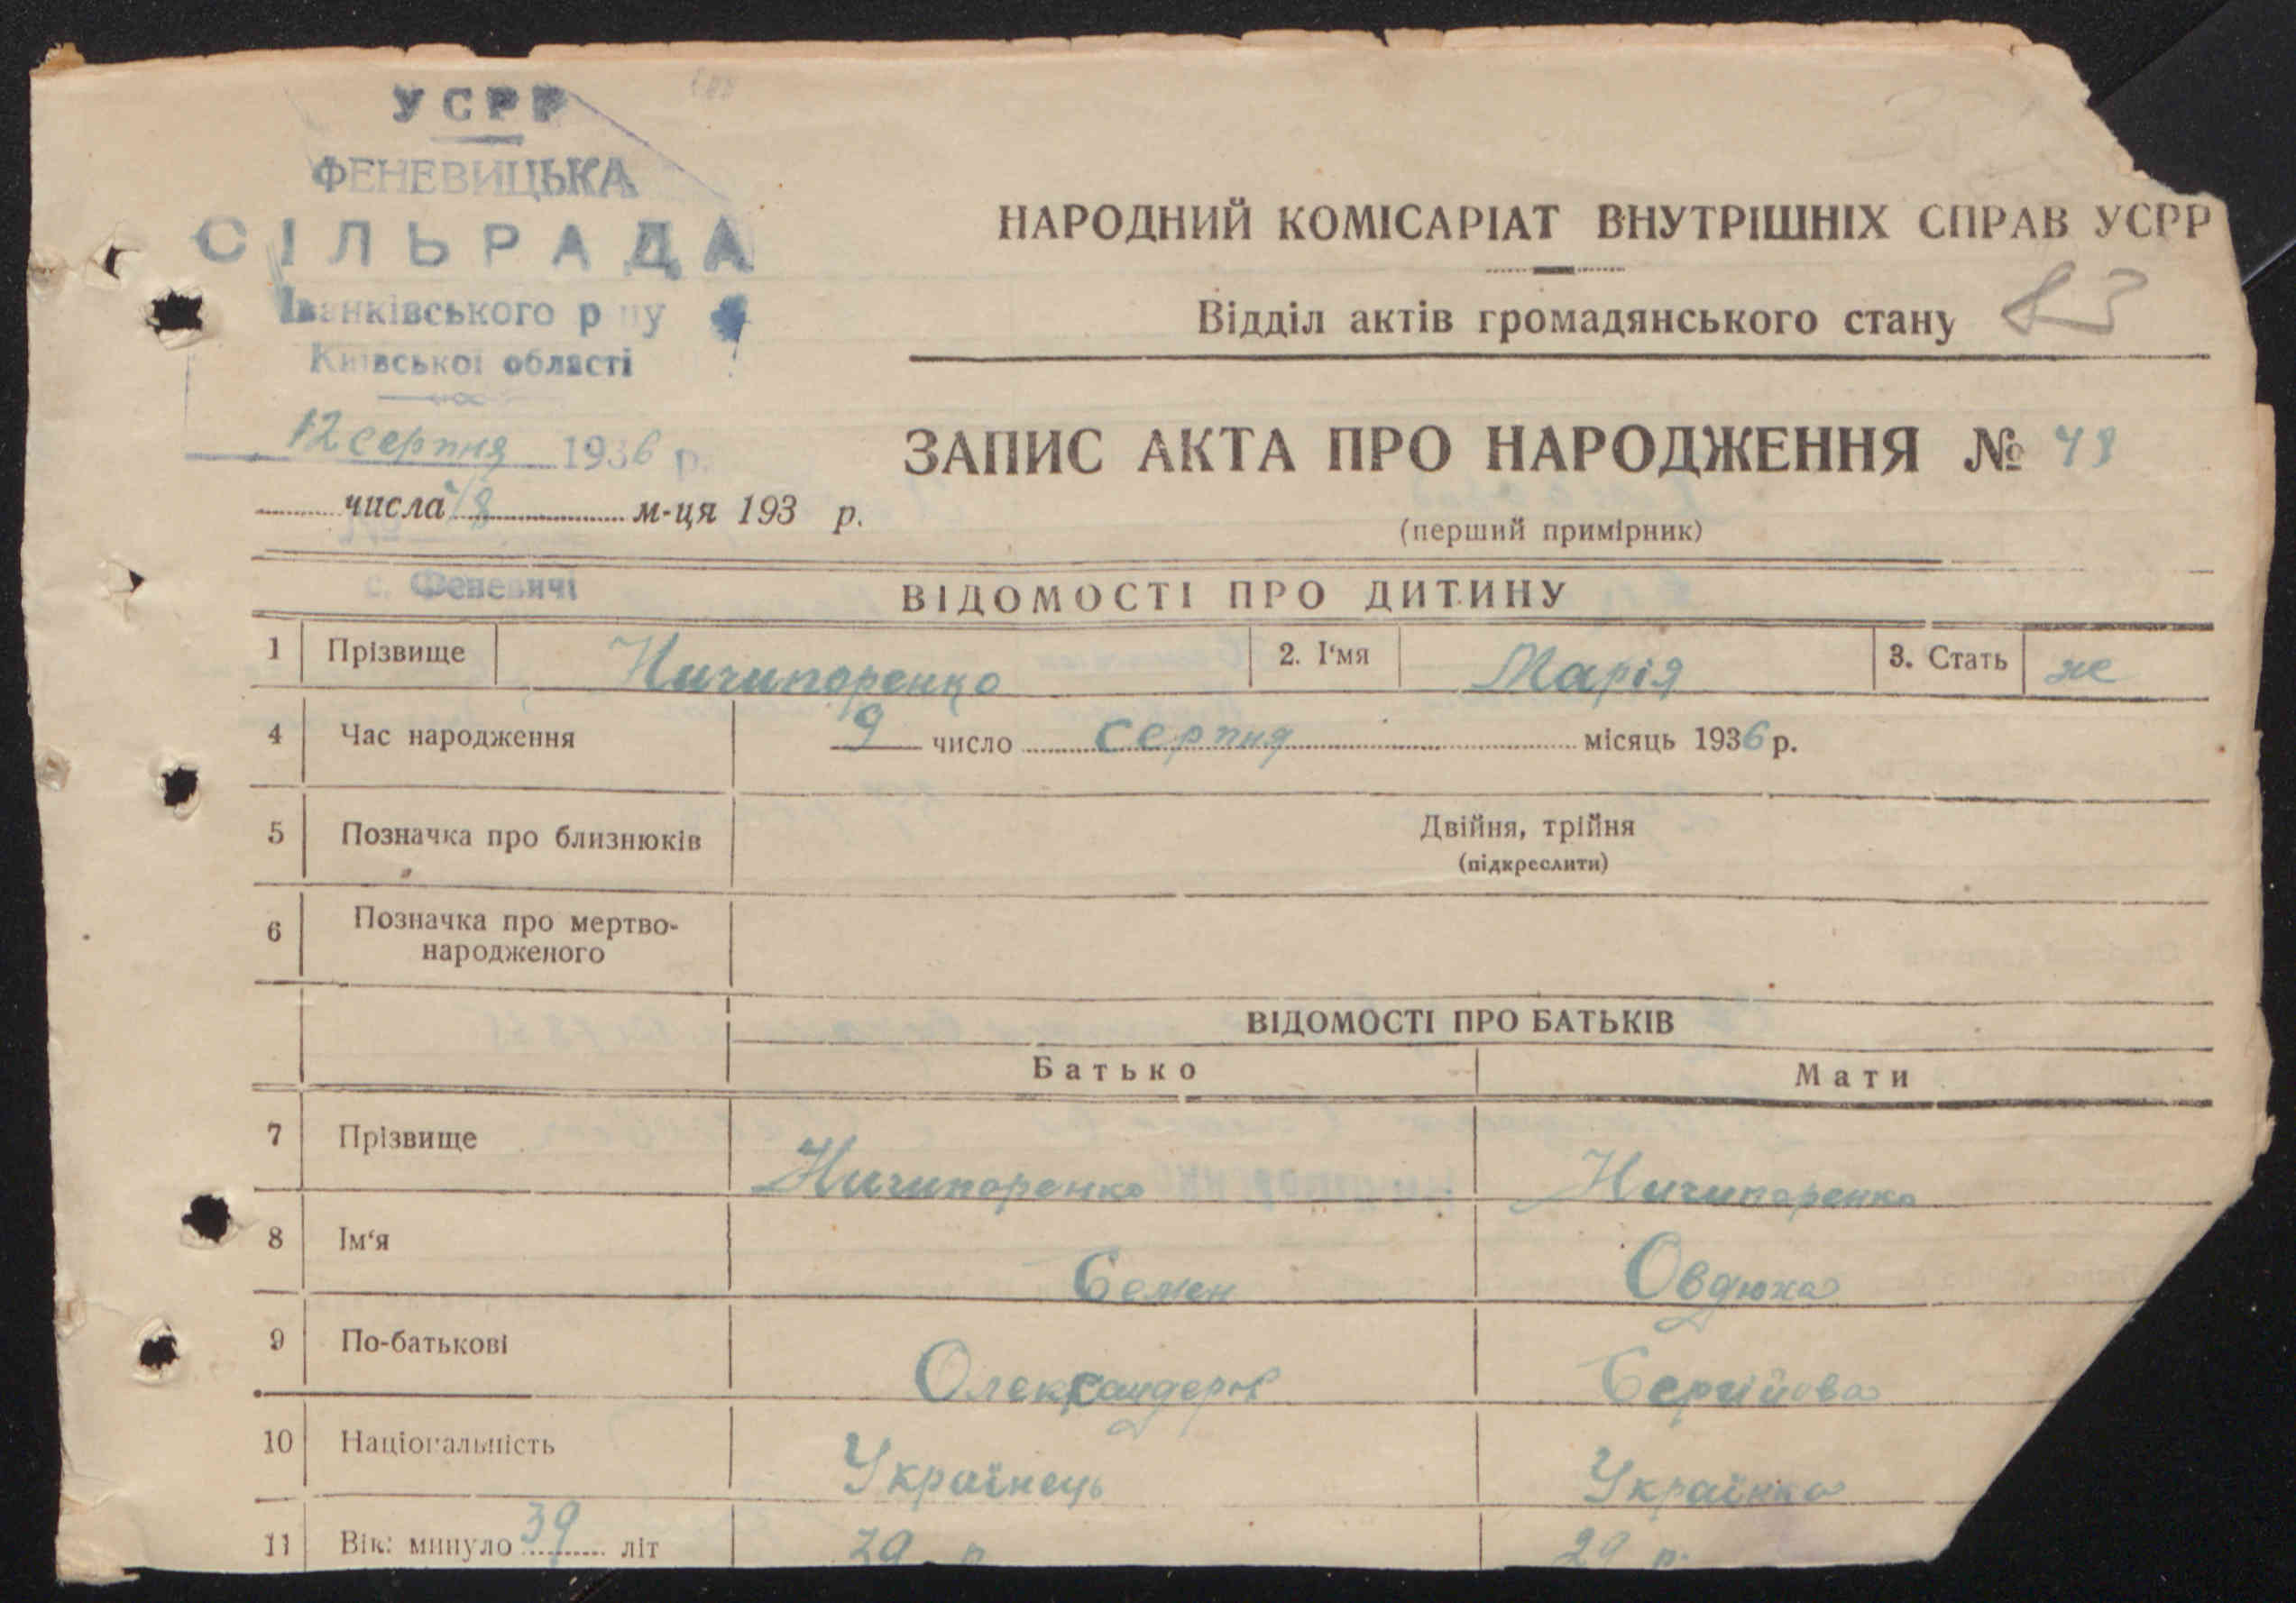 УСРР
ФЕНЕВИЦЬКА
СІЛЬРАДА
Іванківського р ну
Київської області
12 серпня 1936 р.
числа 8 м-ця 193 р.
с. Феневичі
НАРОДНИЙ КОМІСАРІАТ ВНУТРІШНІХ СПРАВ УСРР
Відділ актів громадянського стану 83
ЗАПИС АКТА ПРО НАРОДЖЕННЯ № 48
(перший примірник)
ВІДОМОСТІ ПРО ДИТИНУ
1 Прізвище Ничипоренко 2. І'мя Марія 3. Стать ж
4 Час народження 9 число серпня місяць 1936 р.
5 Позначка про близнюків Двійня, трійня
(підкреслити)
6 Позначка про мертво-
народженого
ВІДОМОСТІ ПРО БАТЬКІВ
Батько Мати
7 Прізвище Ничипоренко Ничипоренко
8 Ім'я Семен Овдюха
9 По-батькові Олександеров Сергійова
10 Національність Українець Українка
11 Вік: минуло 39 літ 39 р 29 р.